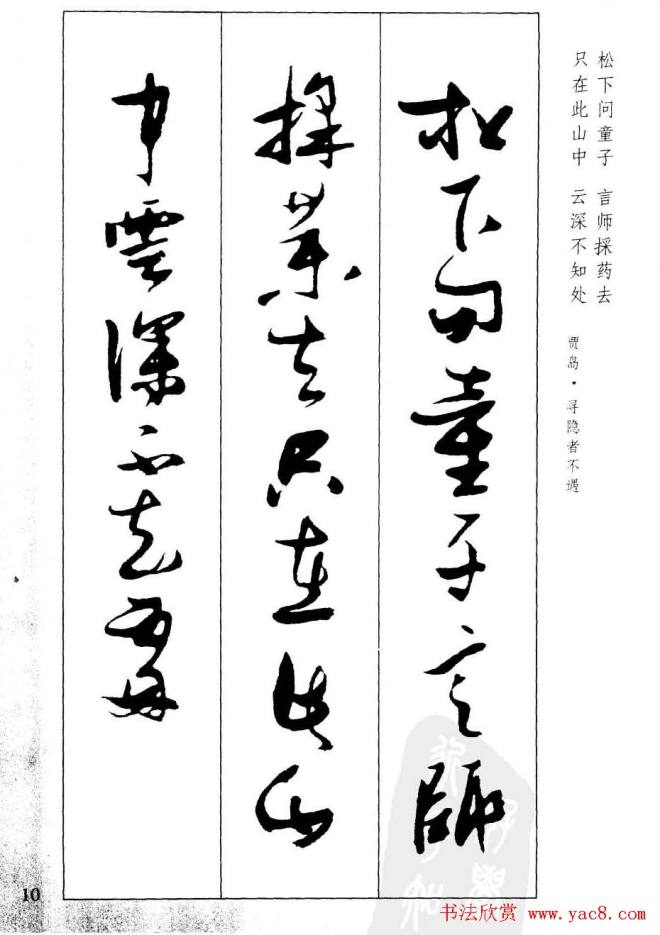 松下问童子 言师採药去
只在此山中 云深不知处
贾岛·寻隐者不遇
松下问童子言師
採葯去只在此山
中雲深不知處
10
书法欣赏 www.yac8.com